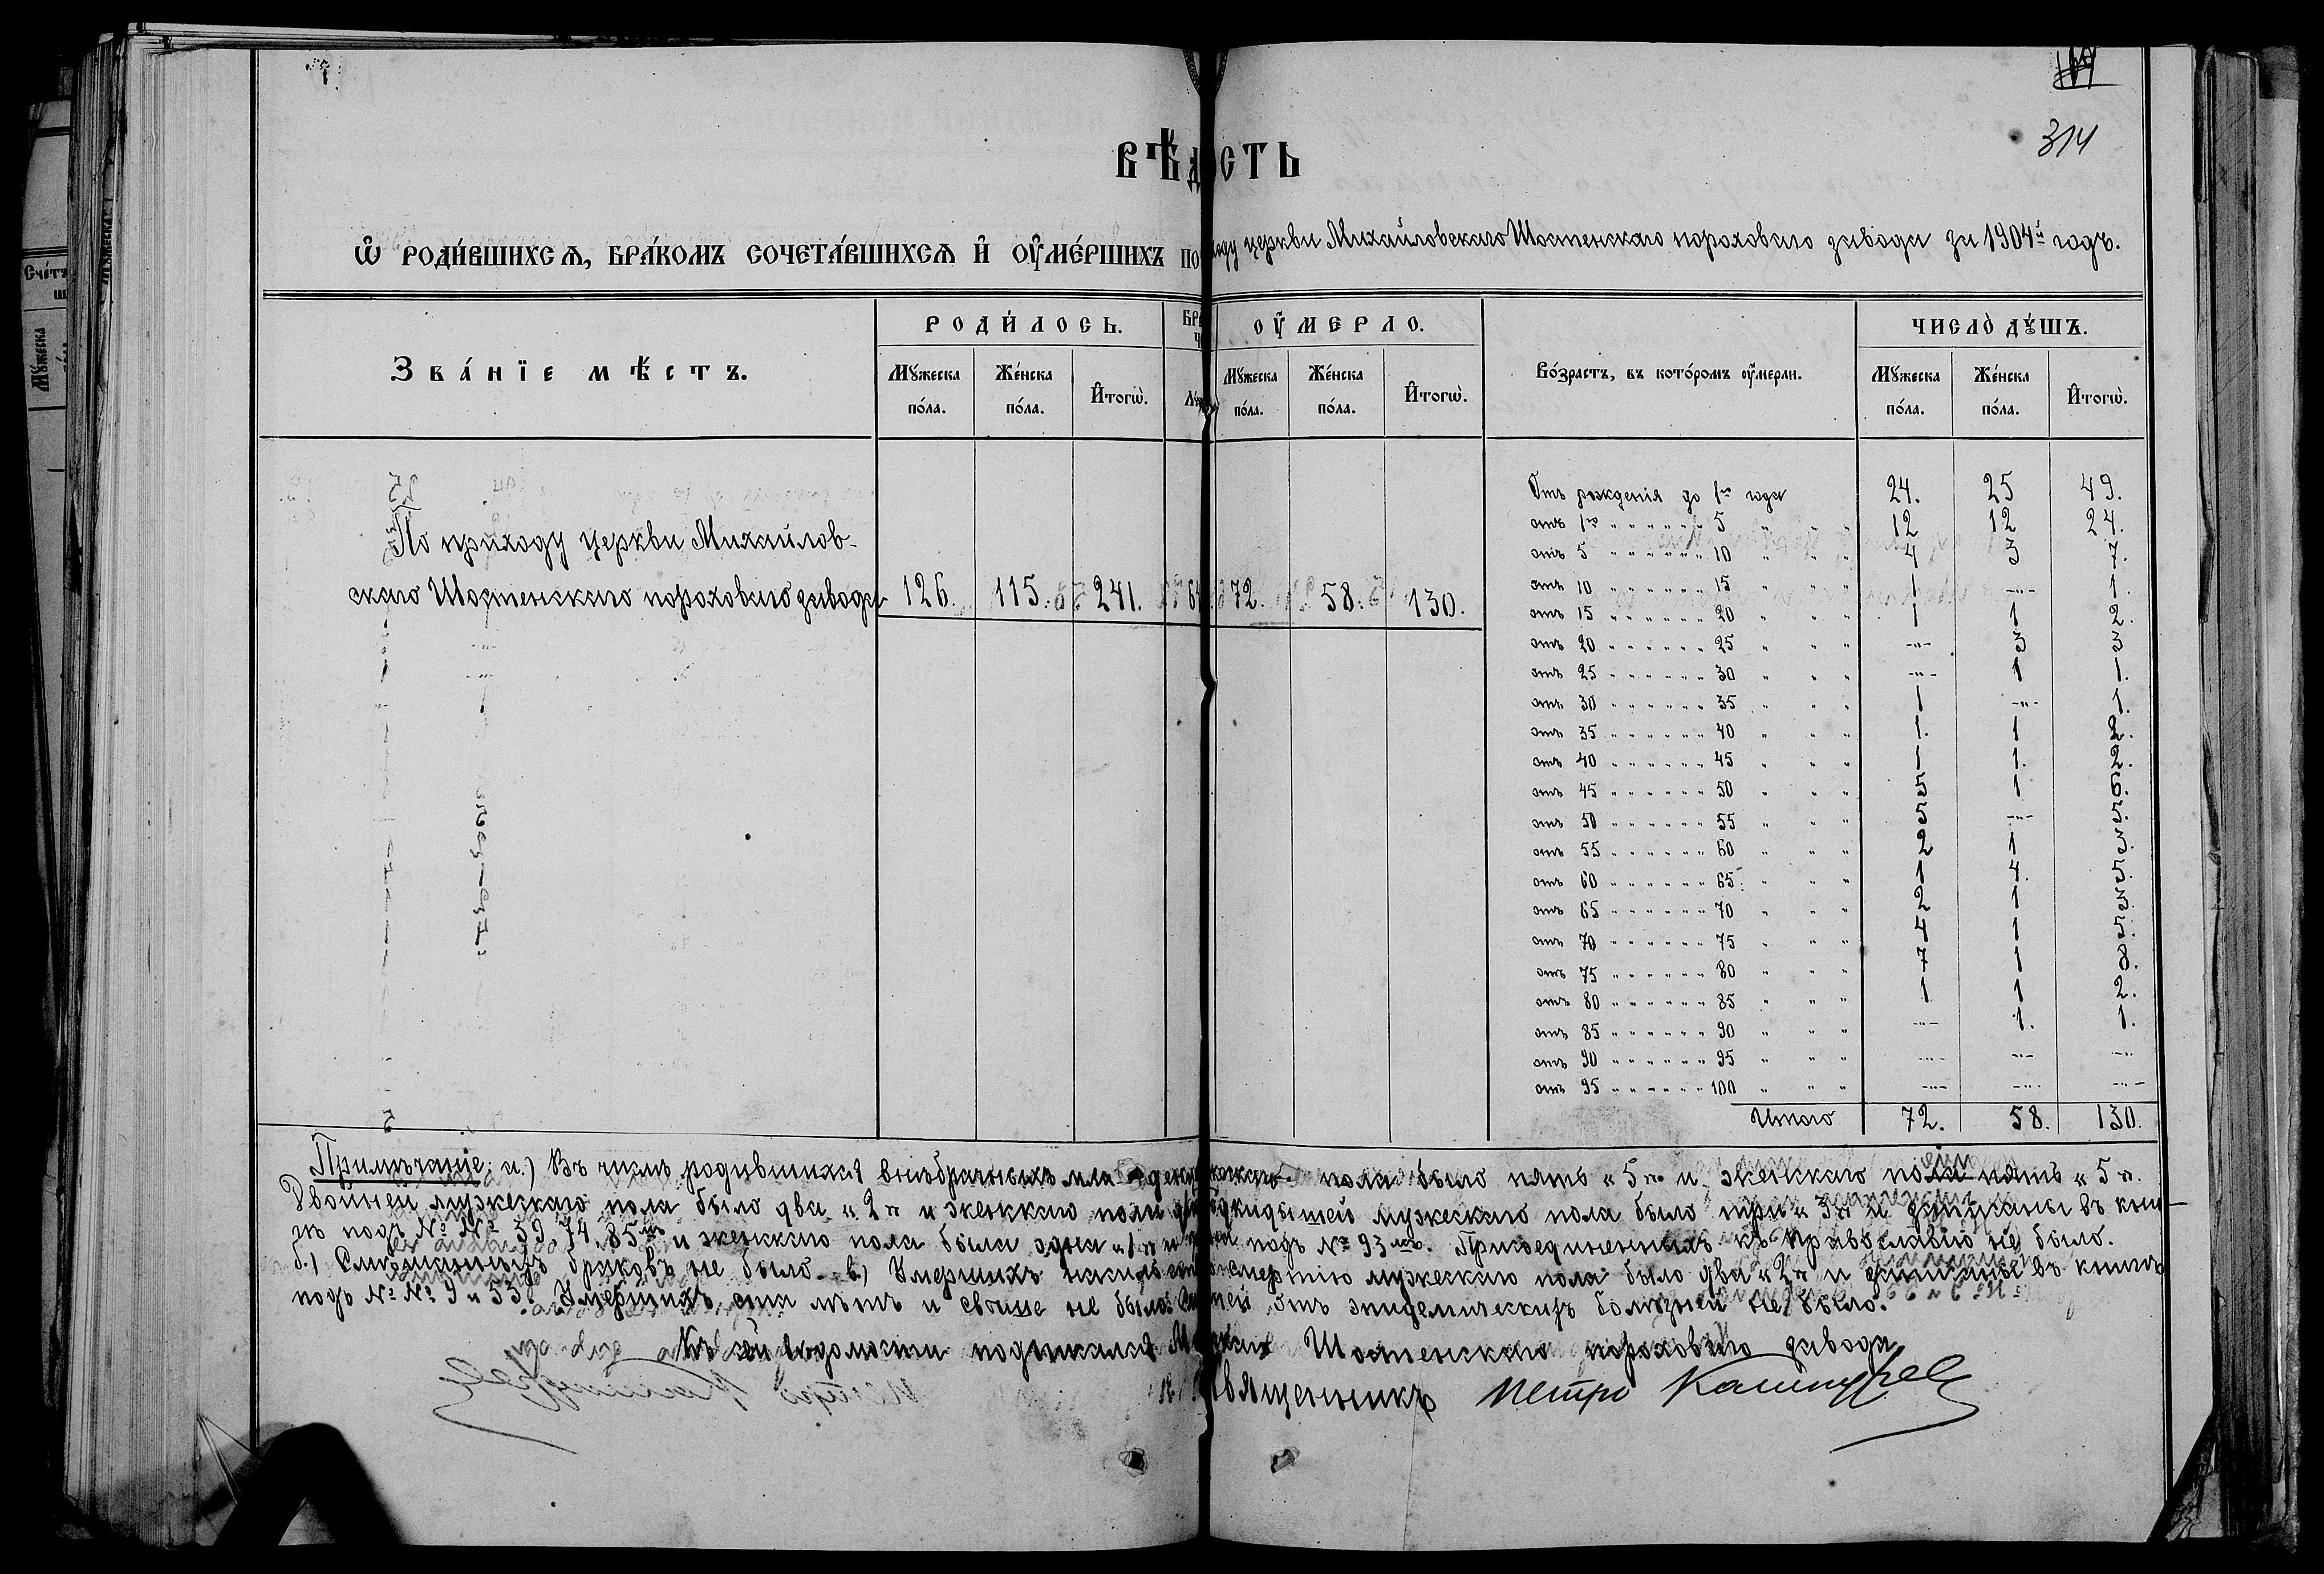 314
ВѢДОСТЬ
Ѡ РОДИ́ВШИХСѦ, БРА́КОМЪ СОЧЕТА́ВШИХСѦ И҆ ОУ҆МЕ́РШИХЪ по ходу церкви Михайловскаго Шостенскаго пороховаго завода за 1904й годъ.
Зва́нїе мѣ́стъ. РОДИ́ЛОСЬ. БРА ОУ҆МЕРЛО. Во́зрастъ, въ кото́ромъ оу҆мерли. ЧИСЛО̀ ДꙊ́ШЪ.
Мꙋ́жеска по́ла. Же́нска по́ла. И҆тогѡ̀. Мꙋ́жеска по́ла. Же́нска по́ла. И҆тогѡ̀. Мꙋ́жеска по́ла. Же́нска по́ла. И҆тогѡ̀.
По приходу церкви Михайлов-
скаго Шостенскаго пороховаго завода 126. 115. 241. 72. 58. 130.
Отъ рожденія до 1го года 24. 25 49.
отъ 1го " " " " " " 5 " " " 12 12 24.
отъ 5 " " " " " " 10 " " " 4 3 7.
отъ 10 " " " " " " 15 " " " 1 -"- 1.
отъ 15 " " " " " " 20 " " " 1 1 2.
отъ 20 " " " " " " 25 " " " -"- 3 3
отъ 25 " " " " " " 30 " " " -"- 1 1.
отъ 30 " " " " " " 35 " " " 1 -"- 1.
отъ 35 " " " " " " 40 " " " 1. 1 2.
отъ 40 " " " " " " 45 " " " 1 1. 2.
отъ 45 " " " " " " 50 " " " 5 1 6.
отъ 50 " " " " " " 55 " " " 5 -"- 5.
отъ 55 " " " " " " 60 " " " 2 1 3.
отъ 60 " " " " " " 65 " " " 1 4. 5.
отъ 65 " " " " " " 70 " " " 2 1 3.
отъ 70 " " " " " " 75 " " " 4 1 5.
отъ 75 " " " " " " 80 " " " 7 1 8.
отъ 80 " " " " " " 85 " " " 1 1 2.
отъ 85 " " " " " " 90 " " " -"- 1. 1.
отъ 90 " " " " " " 95 " " " -"- -"- -"-
отъ 95 " " " " " " 100 " " " -"- -"- -"-
Итого 72. 58. 130.
Примѣчаніе: а.) Въ числѣ родившихся внѣбрачныхъ мла пола было пять "5" и женскаго пола пять "5".
Двойней мужескаго пола было два "2" и женскаго пола мужескаго пола было три "3" и записаны въ кни-
гѣ подъ №№ 39, 74, 85мъ и женскаго пола была одна "1" и подъ № 93мъ. Присоединенныхъ къ православію не было.
б.) Смѣшанныхъ браковъ не было. в.) Умершихъ смертію мужескаго пола было два "2" и записаны въ книгѣ
подъ №№ 9 и 53. Умершихъ ста лѣтъ и свыше не было. отъ эпидемическихъ болѣзней не было.
Къ сей вѣдомости подписался Шостенскаго пороховаго завода
Священникъ Петръ